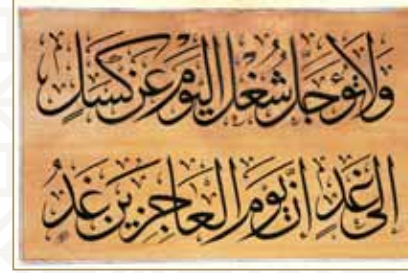 ولا تؤجل شغل اليوم عن كسل
إلى غد إن يوم العاجزين غد